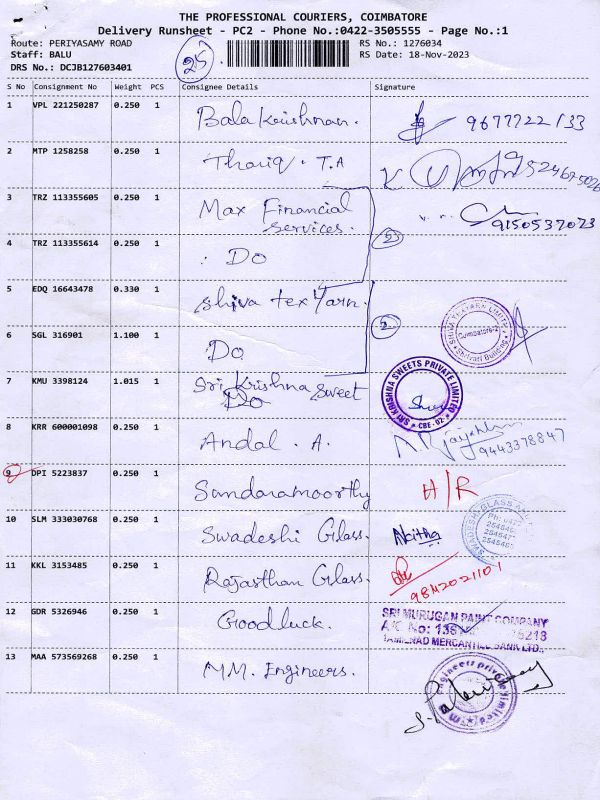 THE PROFESSIONAL COURIERS, COIMBATORE
Delivery Runsheet - PC2 - Phone No.:0422-3505555 - Page No.:1
Route: PERIYASAMY ROAD
RS No.: 1276034
Staff: BALU
25
RS Date: 18-Nov-2023
DRS No.: DCJB127603401
S No Consignment No Weight PCS Consignee Details Signature
1 VPL 221250287 0.250 1 Bala Krishnan. 9677722/33
2 MTP 1258258 0.250 1 Thariq. T.A
3 TRZ 113355605 0.250 1 Max Financial
Services. 9150537023
4 TRZ 113355614 0.250 1 Do 2
5 EDQ 16643478 0.330 1 Shiva tex Yarn. 2
Coimbatore-2
6 SGL 316901 1.100 1 Do
7 KMU 3398124 1.015 1 Sri Krishna Sweet
Do
SRI KRISHNA SWEETS PRIVATE LIMITED
CBE-02
8 KRR 600001098 0.250 1 Andal. A.
9443378847
9 DPI 5223837 0.250 1 Sundaramoorthy H/R
10 SLM 333030768 0.250 1 Swadeshi Glass.
11 KKL 3153485 0.250 1 Rajasthan Glass.
9842021101
12 GDR 5326946 0.250 1 Goodluck.
SRI MURUGAN PAINT COMPANY
A/C No:
TAMILNAD MERCANTILE BANK LTD.,
13 MAA 573569268 0.250 1 M.M. Engineers.